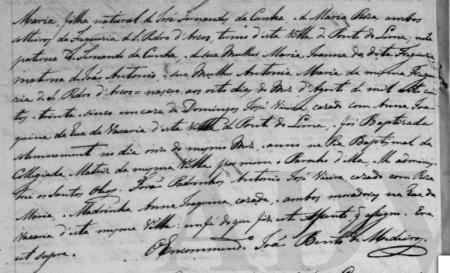 Maria, filha natural de José Fernandes da Cunha, e de Maria Rosa ambos
solteiros da Freguesia de S. Pedro d'Arcos, termo d'esta Villa de Ponte do Lima, neta
paterna de Fernando da Cunha, e de sua Mulher Maria Joanna da dita Freguesia,
materna de José Antonio, e sua Mulher Antonia Maria da mesma Fregue
sia de S. Pedro d'Arcos = nasceo aos sete dias do Mez d'Agosto de mil oito cen
tos e trinta e sinco em caza de Domingos José Vieira, cazado com Anna Joa
quina da Rua da Vacaria d'esta Villa de Ponte do Lima, e foi Baptizada
solemnemente no dia onze do mesmo Mez, e anno na Pia Baptismal da
Collegiada Matriz da mesma Villa por mim o Parocho d'ella, e lh'adminis
trei os Santos Oleos. Forão Padrinhos Antonio José Vieira, cazado com Roza
Maria, e Madrinha Anna Joaquina, cazada, e ambos moradores na Rua da
Vacaria d'esta mesma Villa: em fé do que fiz este Assento q assigno. Era
ut supra.
O Encommend.º João Bento de Medeiros